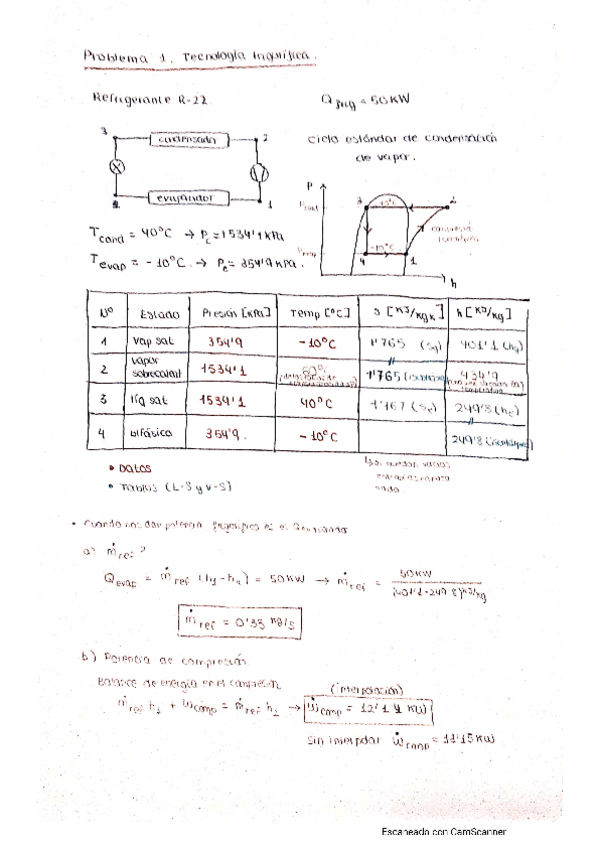 Problema 1. Tecnología frigorífica.
Refrigerante R-22.
Q frig = 50 KW
3 condensador 2
ciclo estándar de
de vapor.
evaporador 1
P
3 2
4 1
h
T cond = 40°C → Pc = 1534'1 kPa
T evap = -10°C → Pe = 354'9 kPa.
Nº Estado Presión [kPa] Temp [°C] s [KJ/kgK] h [KJ/kg]
1 vap sat 354'9 -10°C 1'765 (sg) 401'1 (hg)
2 vapor sobrecalent 1534'1 1'765 434'9
3 líq sat 1534'1 40°C 1'167 249'8
4 bifásico 354'9 -10°C 249'8
• DATOS
• TABLAS (L-S y V-S)
• Cuando nos dan potencia frigorífica es el
a) ṁ ref ?
Q evap = ṁ ref = 50 KW → ṁ ref = 50 KW / (401'1 - 249'8) KJ/kg
ṁ ref = 0'33 kg/s
b) Potencia de compresión.
Balance de energía en el compresor.
(interpolación)
ṁ ref h1 + Ẇ comp = ṁ ref h2 →
sin interpolar Ẇ comp = 11'15 KW
Escaneado con CamScanner